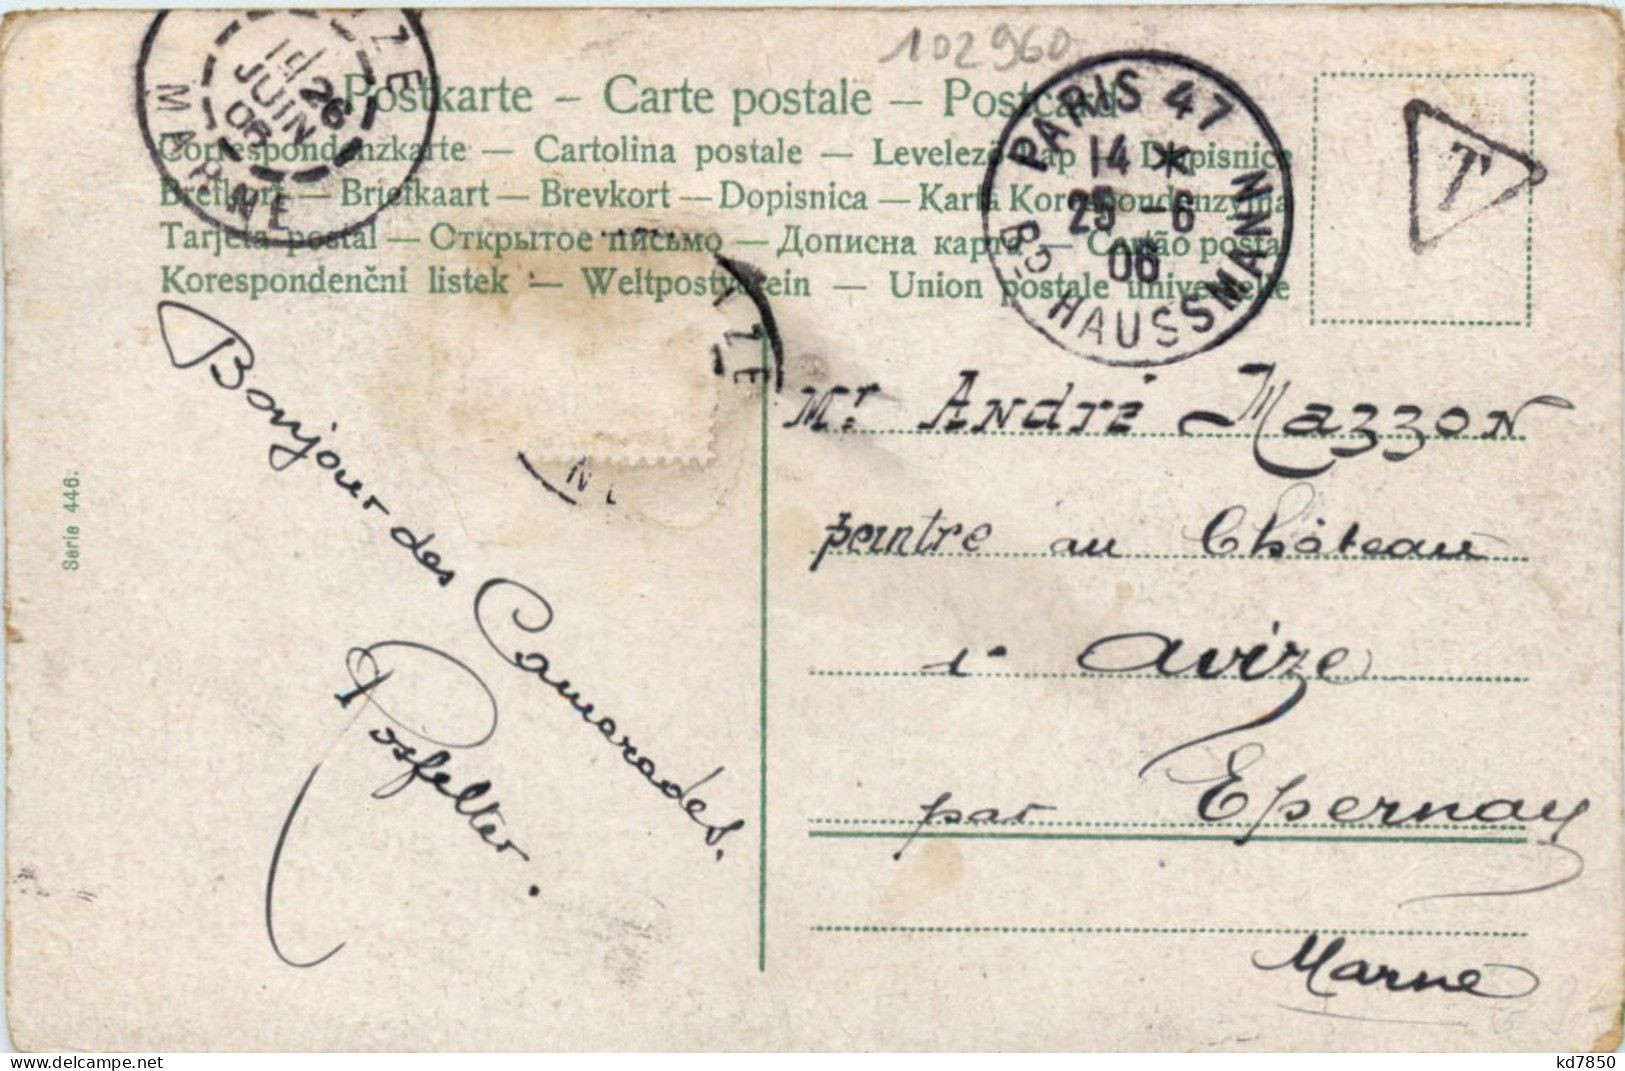 102960
Postkarte – Carte postale – Postcard
Correspondenzkarte – Cartolina postale – Levelező-Lap – Dopisnice
Brefkort – Briefkaart – Brevkort – Dopisnica – Karta Korespondenzyjna
Tarjeta postal – Открытое письмо – Дописна карта – Cartão postal
Korespondenční listek – Weltpostverein – Union postale universelle
ZE
19
26
JUIN
06
MARNE
PARIS 47
14 *
25 -6
06
BD HAUSSMANN
T
IZE
NE
Serie 446.
Bonjour des Camarades.
Posfelter.
Mr. André Mazzon
peintre au Château
à Avize
par Epernay
Marne
kd7850